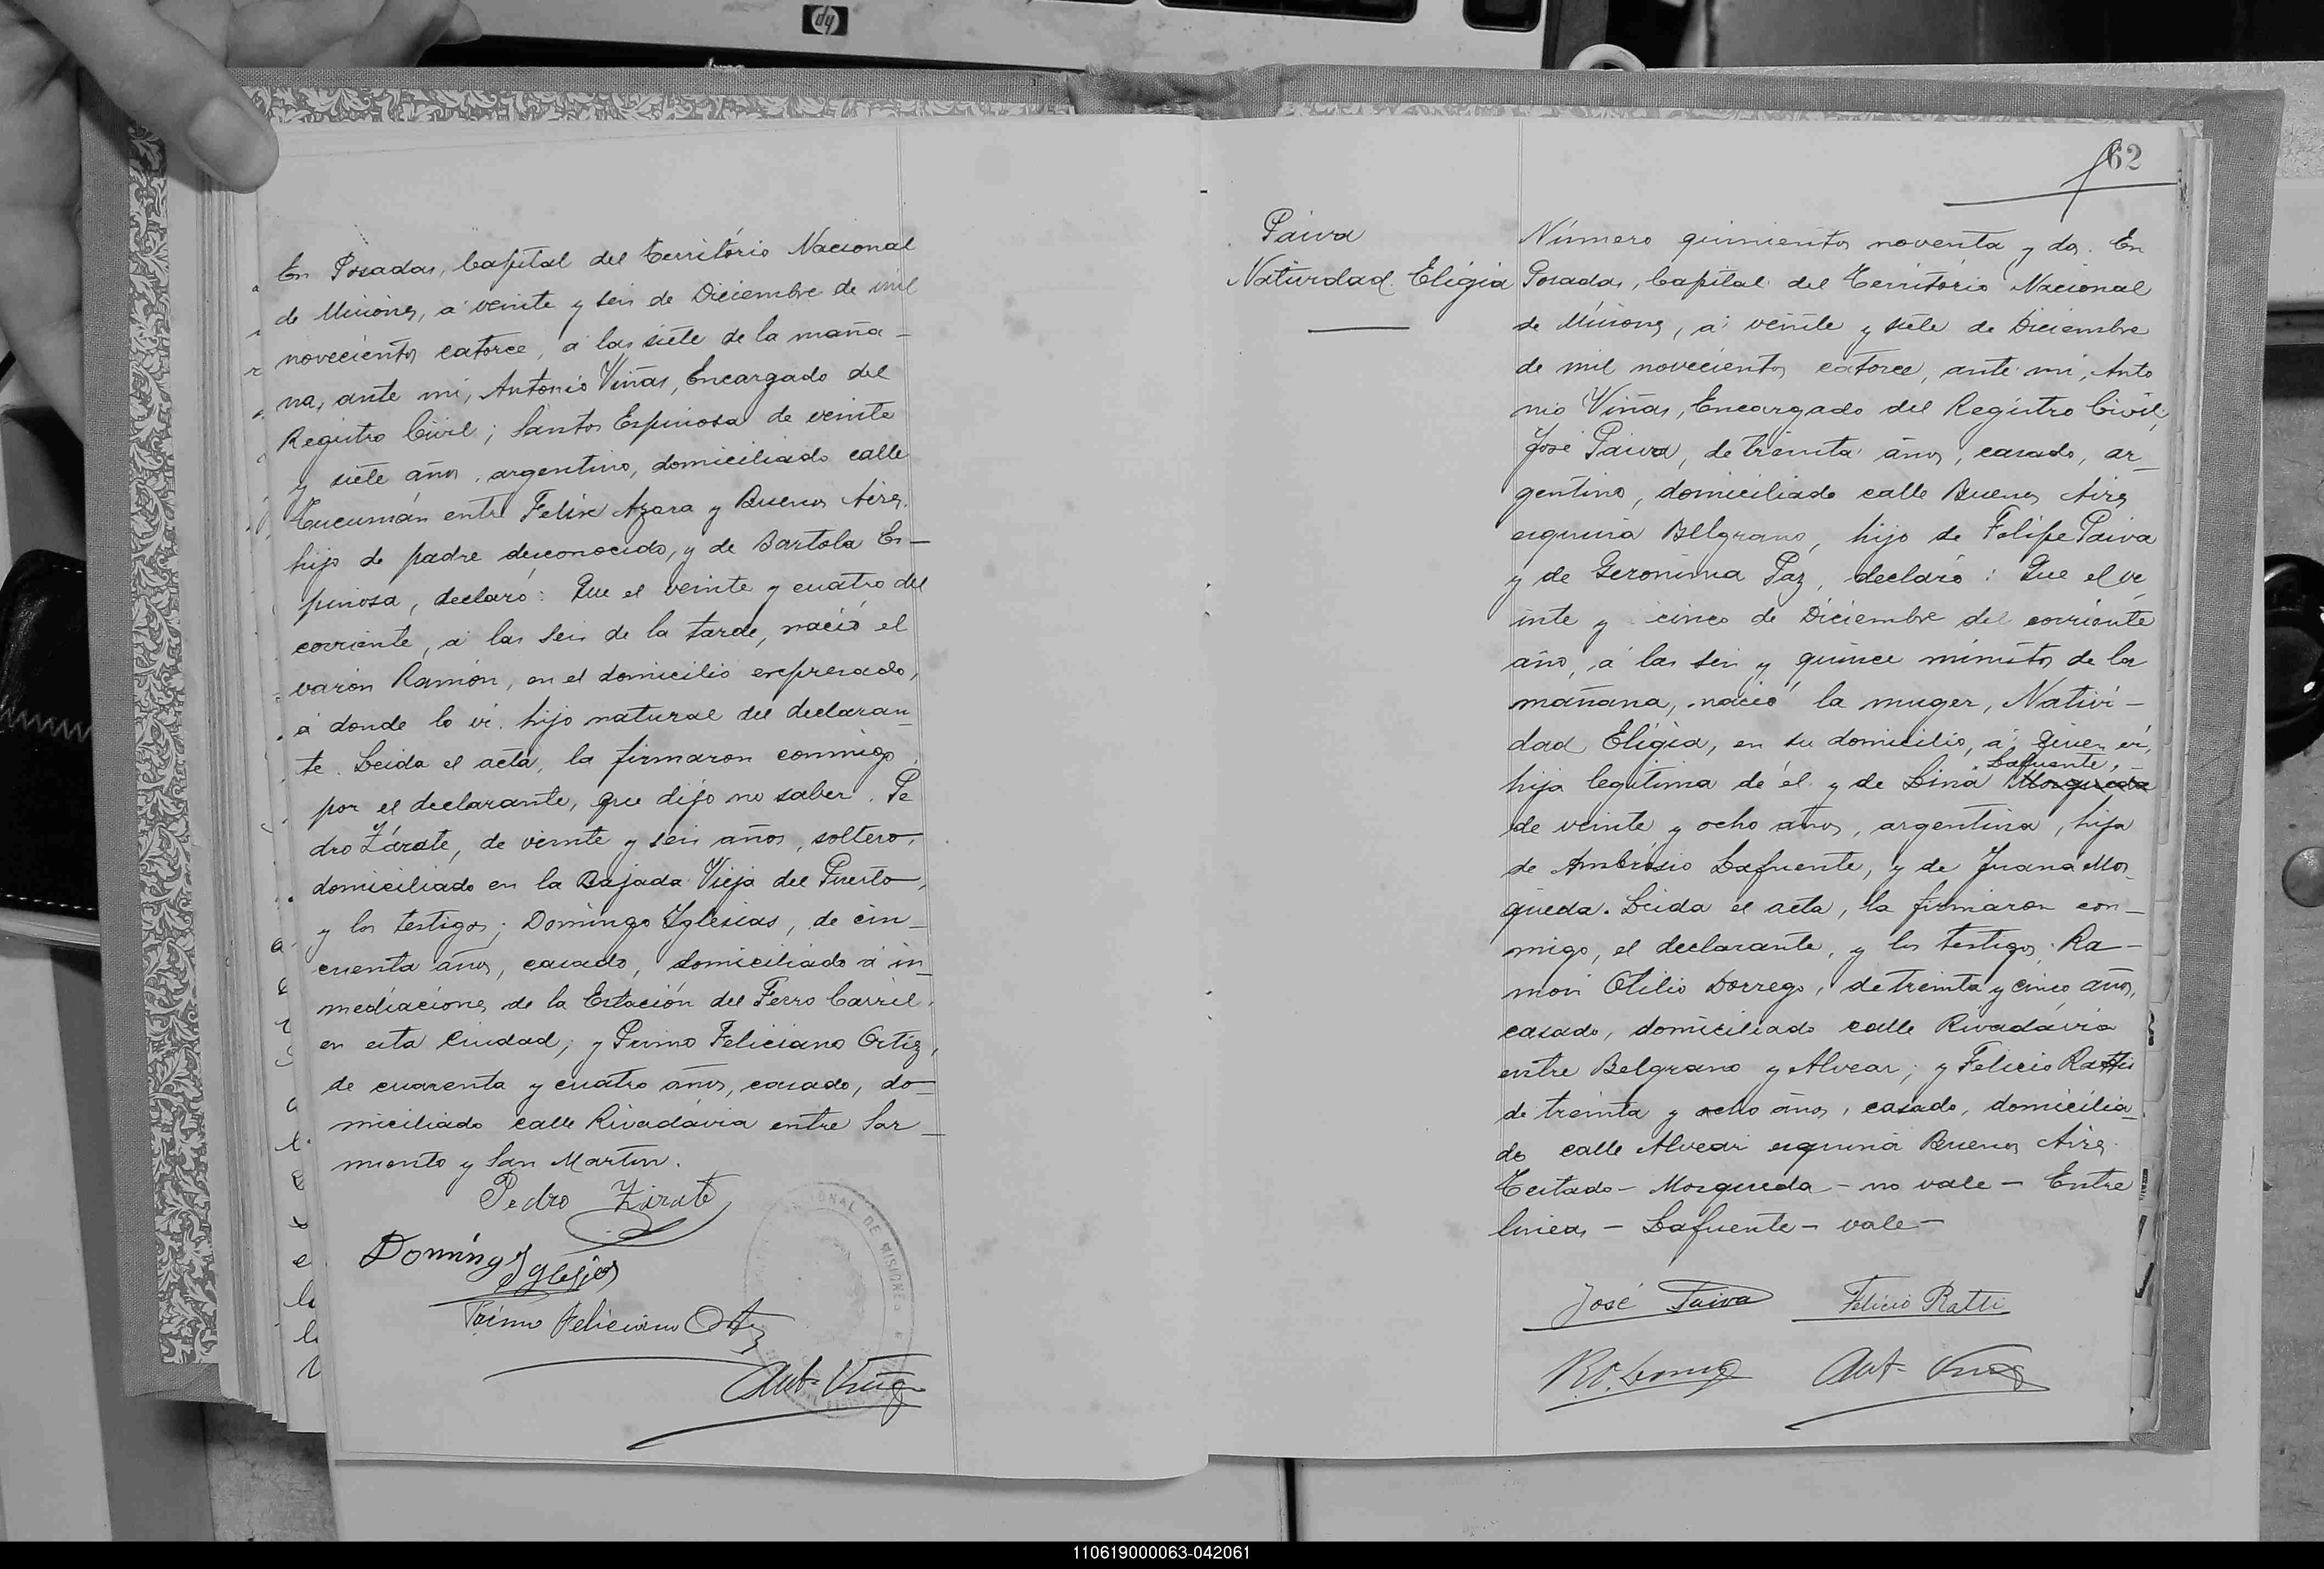 hp
En Posadas, Capital del Territorio Nacional
de Misiones, á veinte y seis de Diciembre de mil
novecientos catorce, á las siete de la maña-
na, ante mi, Antonio Viñas, Encargado del
Registro Civil; Santos Espinosa de veinte
y siete años, argentino, domiciliado calle
Tucumán entre Felix Azara y Buenos Aires.
hijo de padre desconocido, y de Bartola Es-
pinosa, declaró: Que el veinte y cuatro del
corriente, á las seis de la tarde, nació el
varón Ramón, en el domicilio expresado,
á donde lo ví. hijo natural del declaran-
te. Leida el acta, la firmaron conmigo
por el declarante, que dijo no saber. Pe
dro Zárate, de veinte y seis años, soltero,
domiciliado en la Bajada Vieja del Puerto,
y los testigos; Domingo Yglesias, de cin-
cuenta años, casado, domiciliado á in-
mediaciones de la Estación del Ferro Carril,
en esta Ciudad; y Primo Feliciano Ortiz,
de cuarenta y cuatro años, casado, do-
miciliado calle Rivadavia entre Sar-
miento y San Martin.
Pedro Zirate
Domingo Yglesias
Primo Feliciano Ortiz
Ant. Viñas
NACIONAL DE MISIONES
62
Paiva
Natividad Eligia
Número quinientos noventa y dos. En
Posadas, Capital del Territorio Nacional
de Misiones, á veinte y siete de Diciembre
de mil novecientos catorce, ante mi, Anto
nio Viñas, Encargado del Registro Civil,
José Paiva, de treinta años, casado, ar-
gentino, domiciliado calle Buenos Aires
esquina Belgrano, hijo de Felipe Paiva
y de Geronima Paz, declaró: Que el ve
inte y cinco de Diciembre del corriente
año, á las seis y quince minutos de la
mañana, nació la muger, Nativi-
dad Eligia, en su domicilio, á quien ví,
Lafuente,
hija legitima de él y de Lina Mosqueda
de veinte y ocho años, argentina, hija
de Ambrosio Lafuente, y de Juana Mos-
queda. Leida el acta, la firmaron con-
migo, el declarante, y los testigos: Ra-
mon Otilio Dorrego, de treinta y cinco años,
casado, domiciliado calle Rivadavia
entre Belgrano y Alvear; y Felicio Ratti
de treinta y ocho años, casado, domicilia-
do calle Alvear esquina Buenos Aires.
Testado - Mosqueda - no vale - Entre
lineas - Lafuente - vale -
José Paiva
Felicio Ratti
R. O. Dorrego
Ant. Viñas
110619000063-042061